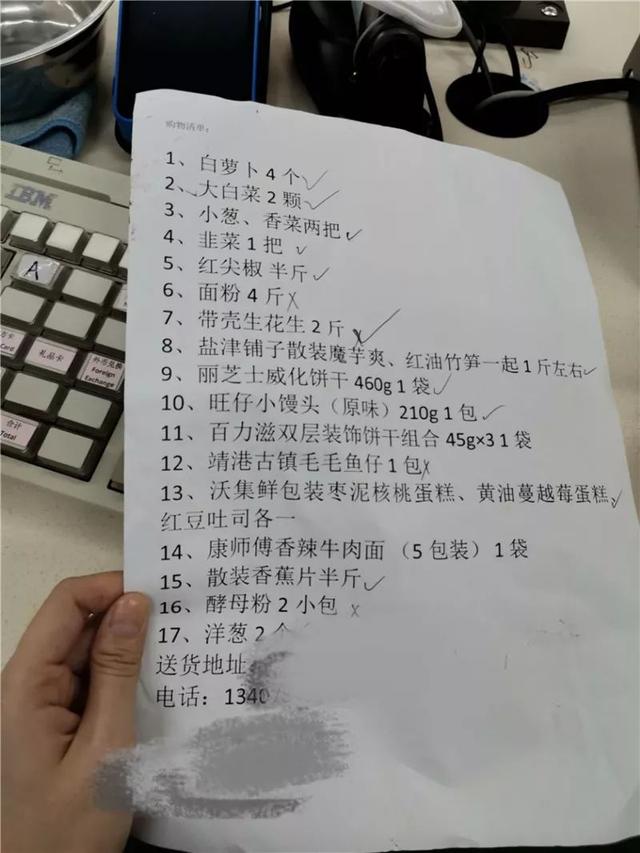 购物清单：
1、白萝卜4个✓
2、大白菜2颗✓
3、小葱、香菜两把✓
4、韭菜1把✓
5、红尖椒 半斤✓
6、面粉4斤✗
7、带壳生花生2斤✗✓
8、盐津铺子散装魔芋爽、红油竹笋一起1斤左右✓
9、丽芝士威化饼干 460g 1袋✓
10、旺仔小馒头（原味）210g 1包✓
11、百力滋双层装饰饼干组合 45g×3 1袋
12、靖港古镇毛毛鱼仔1包✗
13、沃集鲜包装枣泥核桃蛋糕、黄油蔓越莓蛋糕、✓
红豆吐司各一
14、康师傅香辣牛肉面 （5包装）1袋
15、散装香蕉片半斤✓
16、酵母粉2小包 ✗
17、洋葱2个
送货地址
电话：1340
IBM
A
Card
礼品卡
外币兑换
Foreign
Exchange
合计
Total